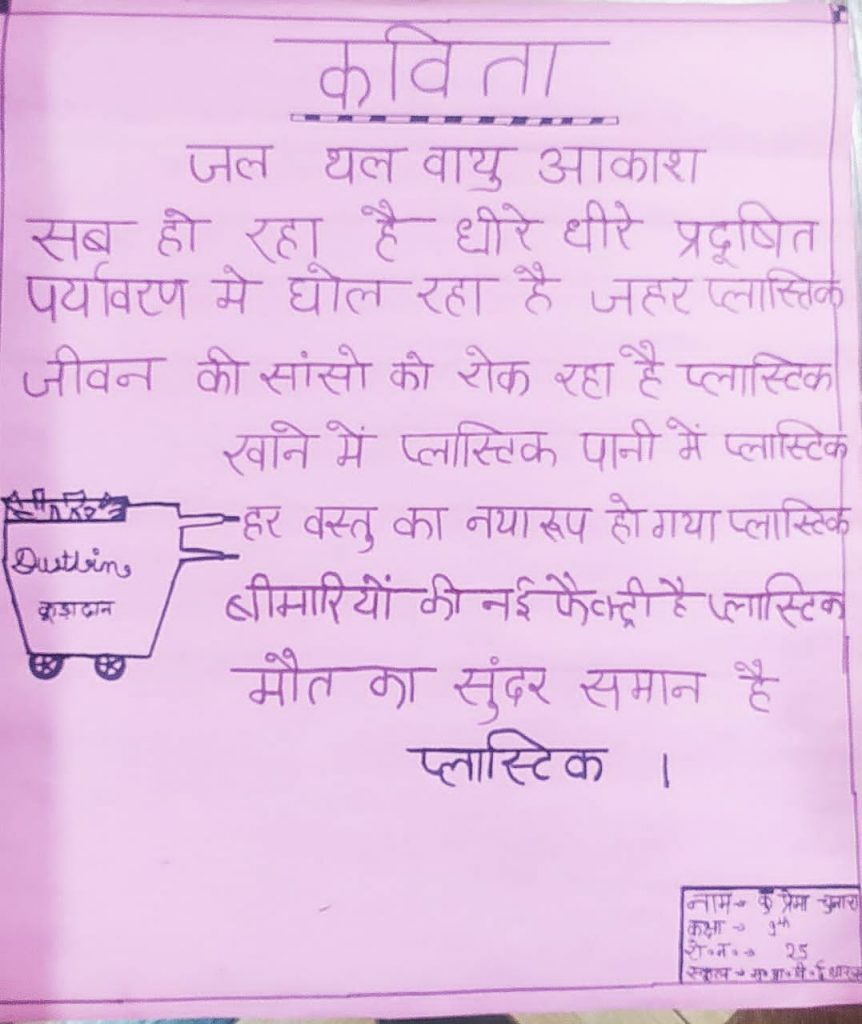 कविता
जल थल वायु आकाश
सब हो रहा है धीरे धीरे प्रदूषित
पर्यावरण मे घोल रहा है जहर प्लास्तिक
जीवन की सांसो को रोक रहा है प्लास्टिक
खाने में प्लास्टिक पानी में प्लास्टिक
हर वस्तु का नया रूप हो गया प्लास्टिक
बीमारियों की नई फैक्ट्री है प्लास्टिक
मौत का सुंदर समान है
प्लास्टिक ।
Dustbin
कूड़ादान
नाम → कु प्रेमा
कक्षा → 9th
रो.न. → 25
स्कूल →